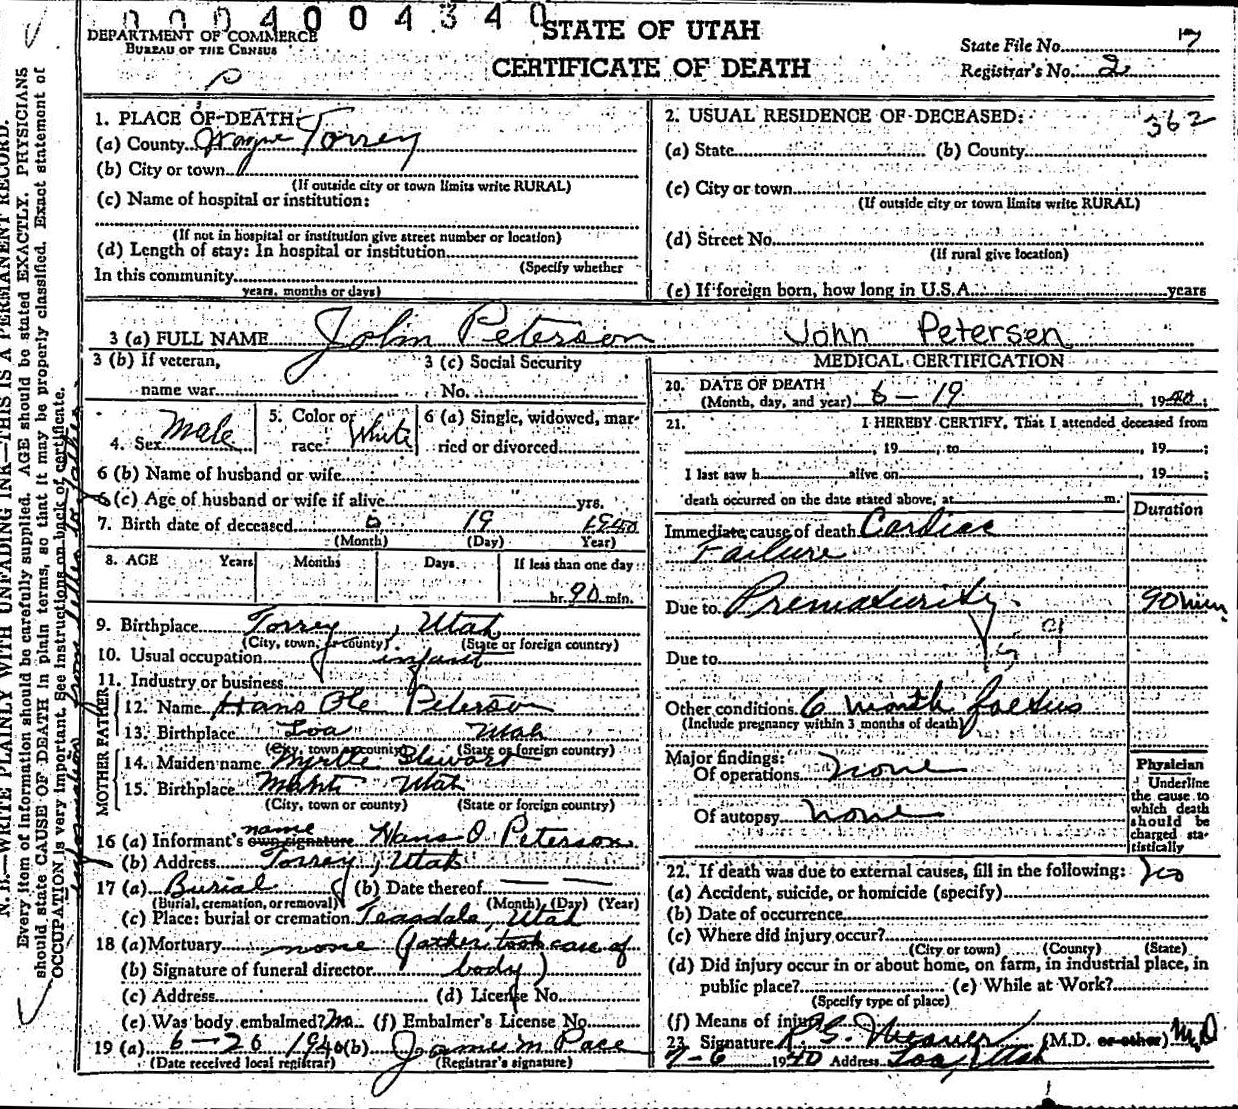 0004004340
DEPARTMENT OF COMMERCE
BUREAU OF THE CENSUS
STATE OF UTAH
CERTIFICATE OF DEATH
State File No. 7
Registrar's No. 2
1. PLACE OF DEATH:
(a) County Wayne Torrey
(b) City or town
(If outside city or town limits write RURAL)
(c) Name of hospital or institution:
(If not in hospital or institution give street number or location)
(d) Length of stay: In hospital or institution
(Specify whether
In this community
years, months or days)
2. USUAL RESIDENCE OF DECEASED:
362
(a) State (b) County
(c) City or town
(If outside city or town limits write RURAL)
(d) Street No.
(If rural give location)
(e) If foreign born, how long in U.S.A. years
3 (a) FULL NAME John Peterson John Petersen
3 (b) If veteran, 3 (c) Social Security
name war No.
4. Sex Male 5. Color or race White 6 (a) Single, widowed, married or divorced
6 (b) Name of husband or wife
6 (c) Age of husband or wife if alive yrs.
7. Birth date of deceased 6 19 1940
(Month) (Day) Year)
8. AGE Years Months Days If less than one day
hr. 90 min.
9. Birthplace Torrey, Utah
(City, town, or county) (State or foreign country)
10. Usual occupation infant
11. Industry or business
FATHER
12. Name Hans Ole Peterson
13. Birthplace Loa Utah
(City, town or county) (State or foreign country)
MOTHER
14. Maiden name Myrtle Stewart
15. Birthplace Utah
(City, town or county) (State or foreign country)
16 (a) Informant's own signature name Hans O. Peterson
(b) Address Torrey, Utah
17 (a) Burial (b) Date thereof — —
(Burial, cremation, or removal) (Month) (Day) (Year)
(c) Place: burial or cremation Teasdale, Utah
18 (a) Mortuary none (father took care of
(b) Signature of funeral director body)
(c) Address (d) License No.
(e) Was body embalmed? No (f) Embalmer's License No.
19 (a) 6-26 1940 (b) James M Pace
(Date received local registrar) (Registrar's signature)
MEDICAL CERTIFICATION
20. DATE OF DEATH
(Month, day, and year) 6-19, 1940;
21. I HEREBY CERTIFY, That I attended deceased from
, 19 , to , 19 ;
I last saw h alive on , 19 ;
death occurred on the date stated above, at m.
Duration
Immediate cause of death Cardiac
Failure
Due to Prematurity 90 min
159
Due to
Other conditions 6 month foetus
(Include pregnancy within 3 months of death)
Major findings:
Of operations none
Of autopsy none
Physician
Underline
the cause to
which death
should be
charged sta-
tistically
22. If death was due to external causes, fill in the following: no
(a) Accident, suicide, or homicide (specify)
(b) Date of occurrence
(c) Where did injury occur?
(City or town) (County) (State)
(d) Did injury occur in or about home, on farm, in industrial place, in
public place? (e) While at Work?
(Specify type of place)
(f) Means of injury
23 Signature R G. Weaver (M.D. or other) M.D
7-6 1940 Address Loa, Utah
N. B.—WRITE PLAINLY WITH UNFADING INK—THIS IS A PERMANENT RECORD.
Every item of information should be carefully supplied. AGE should be stated EXACTLY. PHYSICIANS
should state CAUSE OF DEATH in plain terms, so that it may be properly classified. Exact statement of
OCCUPATION is very important. See instructions on back of certificate.
information from letter to father